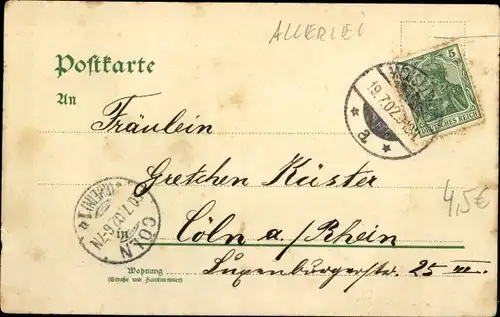 ALLERLEI
Postkarte
5
DEUTSCHES REICH
19.7.02.
a
An
Fräulein
Gretchen Küster
4,5€
20.7.02.6-7N
CÖLN
in Cöln a./Rhein
Wohnung
(Straße und Hausnummer)
Luxemburgerstr. 25 III.